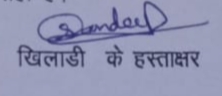 Sandeep
खिलाडी के हस्ताक्षर